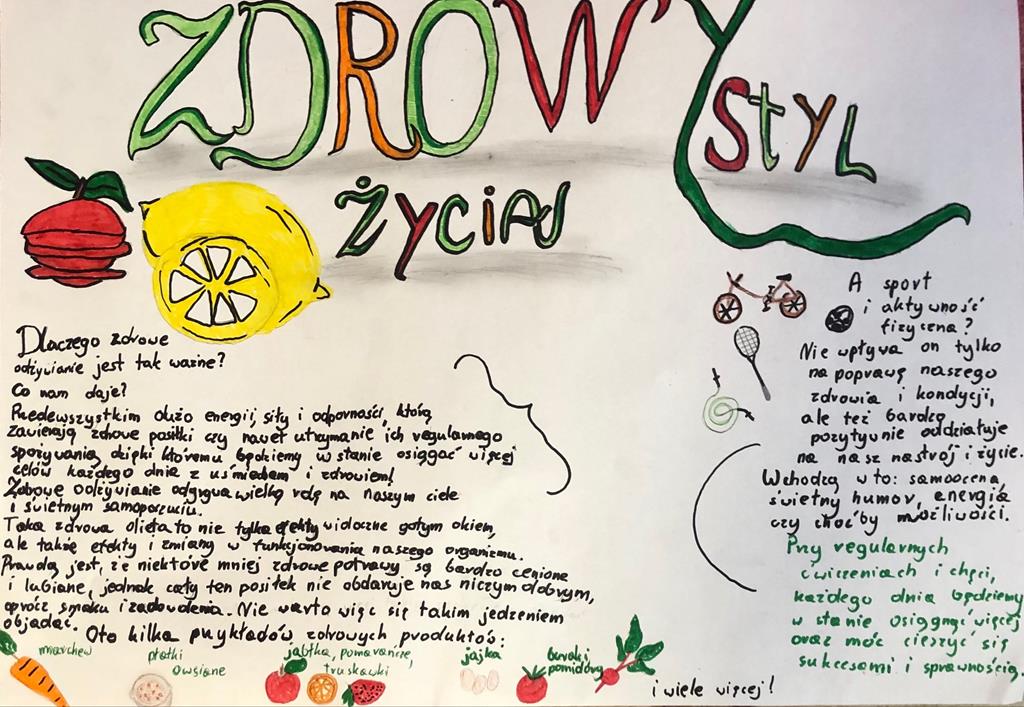 ZDROWY
STYL
ŻYCIA
Dlaczego zdrowe
odżywianie jest tak ważne?
Co nam daje?
Przedewszystkim dużo energii, siły i odporności, którą
zawierają zdrowe posiłki czy nawet utrzymanie ich regularnego
spożywania, dzięki któremu będziemy w stanie osiągać więcej
celów każdego dnia z uśmiechem i zdrowiem!
Zdrowe odżywianie odgrywa wielką rolę na naszym ciele
i świetnym samopoczuciu.
Taka zdrowa dieta to nie tylko efekty widoczne gołym okiem,
ale także efekty i zmiany w funkcjonowania naszego organizmu.
Prawdą jest, że niektóre mniej zdrowe potrawy są bardzo cenione
i lubiane, jednak cały ten posiłek nie obdaruje nas niczym dobrym,
oprócz smaku i zadowolenia. Nie warto więc się takim jedzeniem
objadać. Oto kilka przykładów zdrowych produktów:
marchew
płatki
owsiane
jabłka, pomarańcze,
truskawki
jajka
buraki
pomidory
i wiele więcej!
A sport
i aktywność
fizyczna?
Nie wpływa on tylko
na poprawę naszego
zdrowia i kondycji,
ale też bardzo
pozytywnie oddziałuje
na nasz nastrój i życie.
Wchodzą w to: samoocena,
świetny humor, energia
czy choćby możliwości.
Przy regularnych
ćwiczeniach i chęci,
każdego dnia będziemy
w stanie osiągnąć więcej
oraz móc cieszyć się
sukcesami i sprawnością.